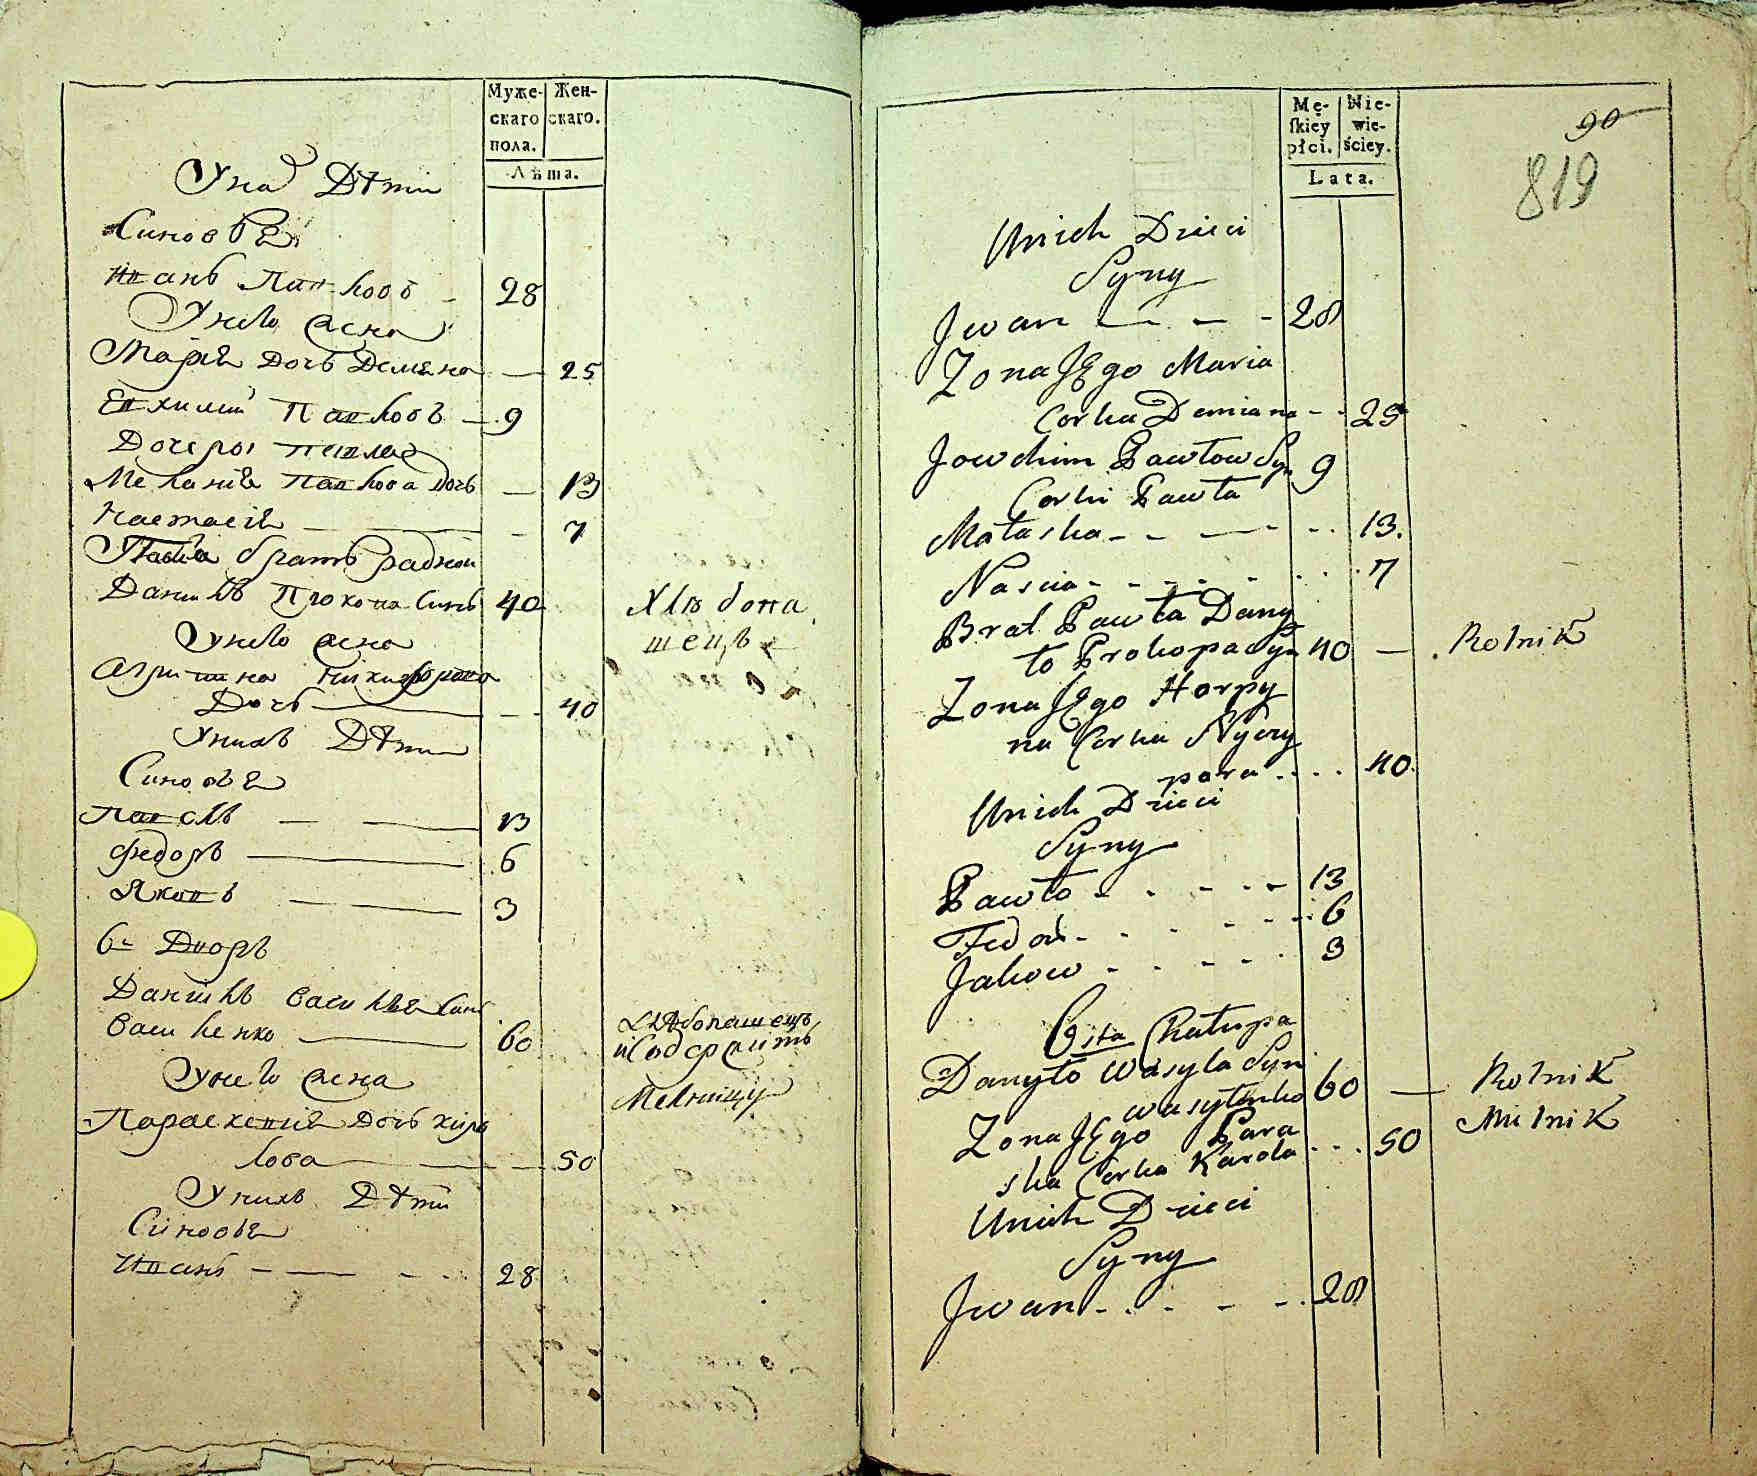 Муже-
скаго
пола.
Жен-
скаго.
Лѣта.
Уна Дѣти
Синовѣ
Иванъ Павловъ - 28
Унего Жена
Марія Дочь Демяна — 25
Павловъ — 9
Дочеры Павла
Меланія Павлова Дочь — 13
Настасія — 7
Павла братъ Радной
Данилъ Прокопа Синъ 40 Хлѣбопа
шецъ
Унего Жена
Агрипина Никифорова
Дочь — 40
Унихъ Дѣти
Синовя
Павелъ — — 13
Федоръ — 6
Яковъ — 3
6- Дворъ
Данилъ Василья Синъ
Василенко — 60 Хлѣбопашецъ
и Содержитъ
Мелницу
Унего Жена
Параскевія Дочь Кири
лова — 50
Унихъ Дѣти
Синовя
Иванъ - — - - 28
Mę-
ſkiey
płci.
Nie-
wie-
ściey.
Lata.
90
819
Unich Dzieci
Syny
Jwan — — - 28
Zona JEgo Maria
Corka Demiana - - 25
Jowchim Pawłow Syn 9
Corki Pawła
Małaska - - — - - 13.
Nascia - - - - - - 7
Brat Pawła Dany
ło Prokopa Syn 40 — Rolnik
Zona JEgo Horpy
na Corka Nyczy
pora . . . . 40.
Unich Dzieci
Syny
Pawło - - - - - 13
Fedor - - - - - 6
Jakow - - - - - 3
6sta Chałupa
Danyło Wasyla Syn
Wasylenko 60 — Rolnik
Milnik
Zona JEgo Para
ska Corka Karola . . . 50
Unich Dzieci
Syny
Jwan - - - - - 28